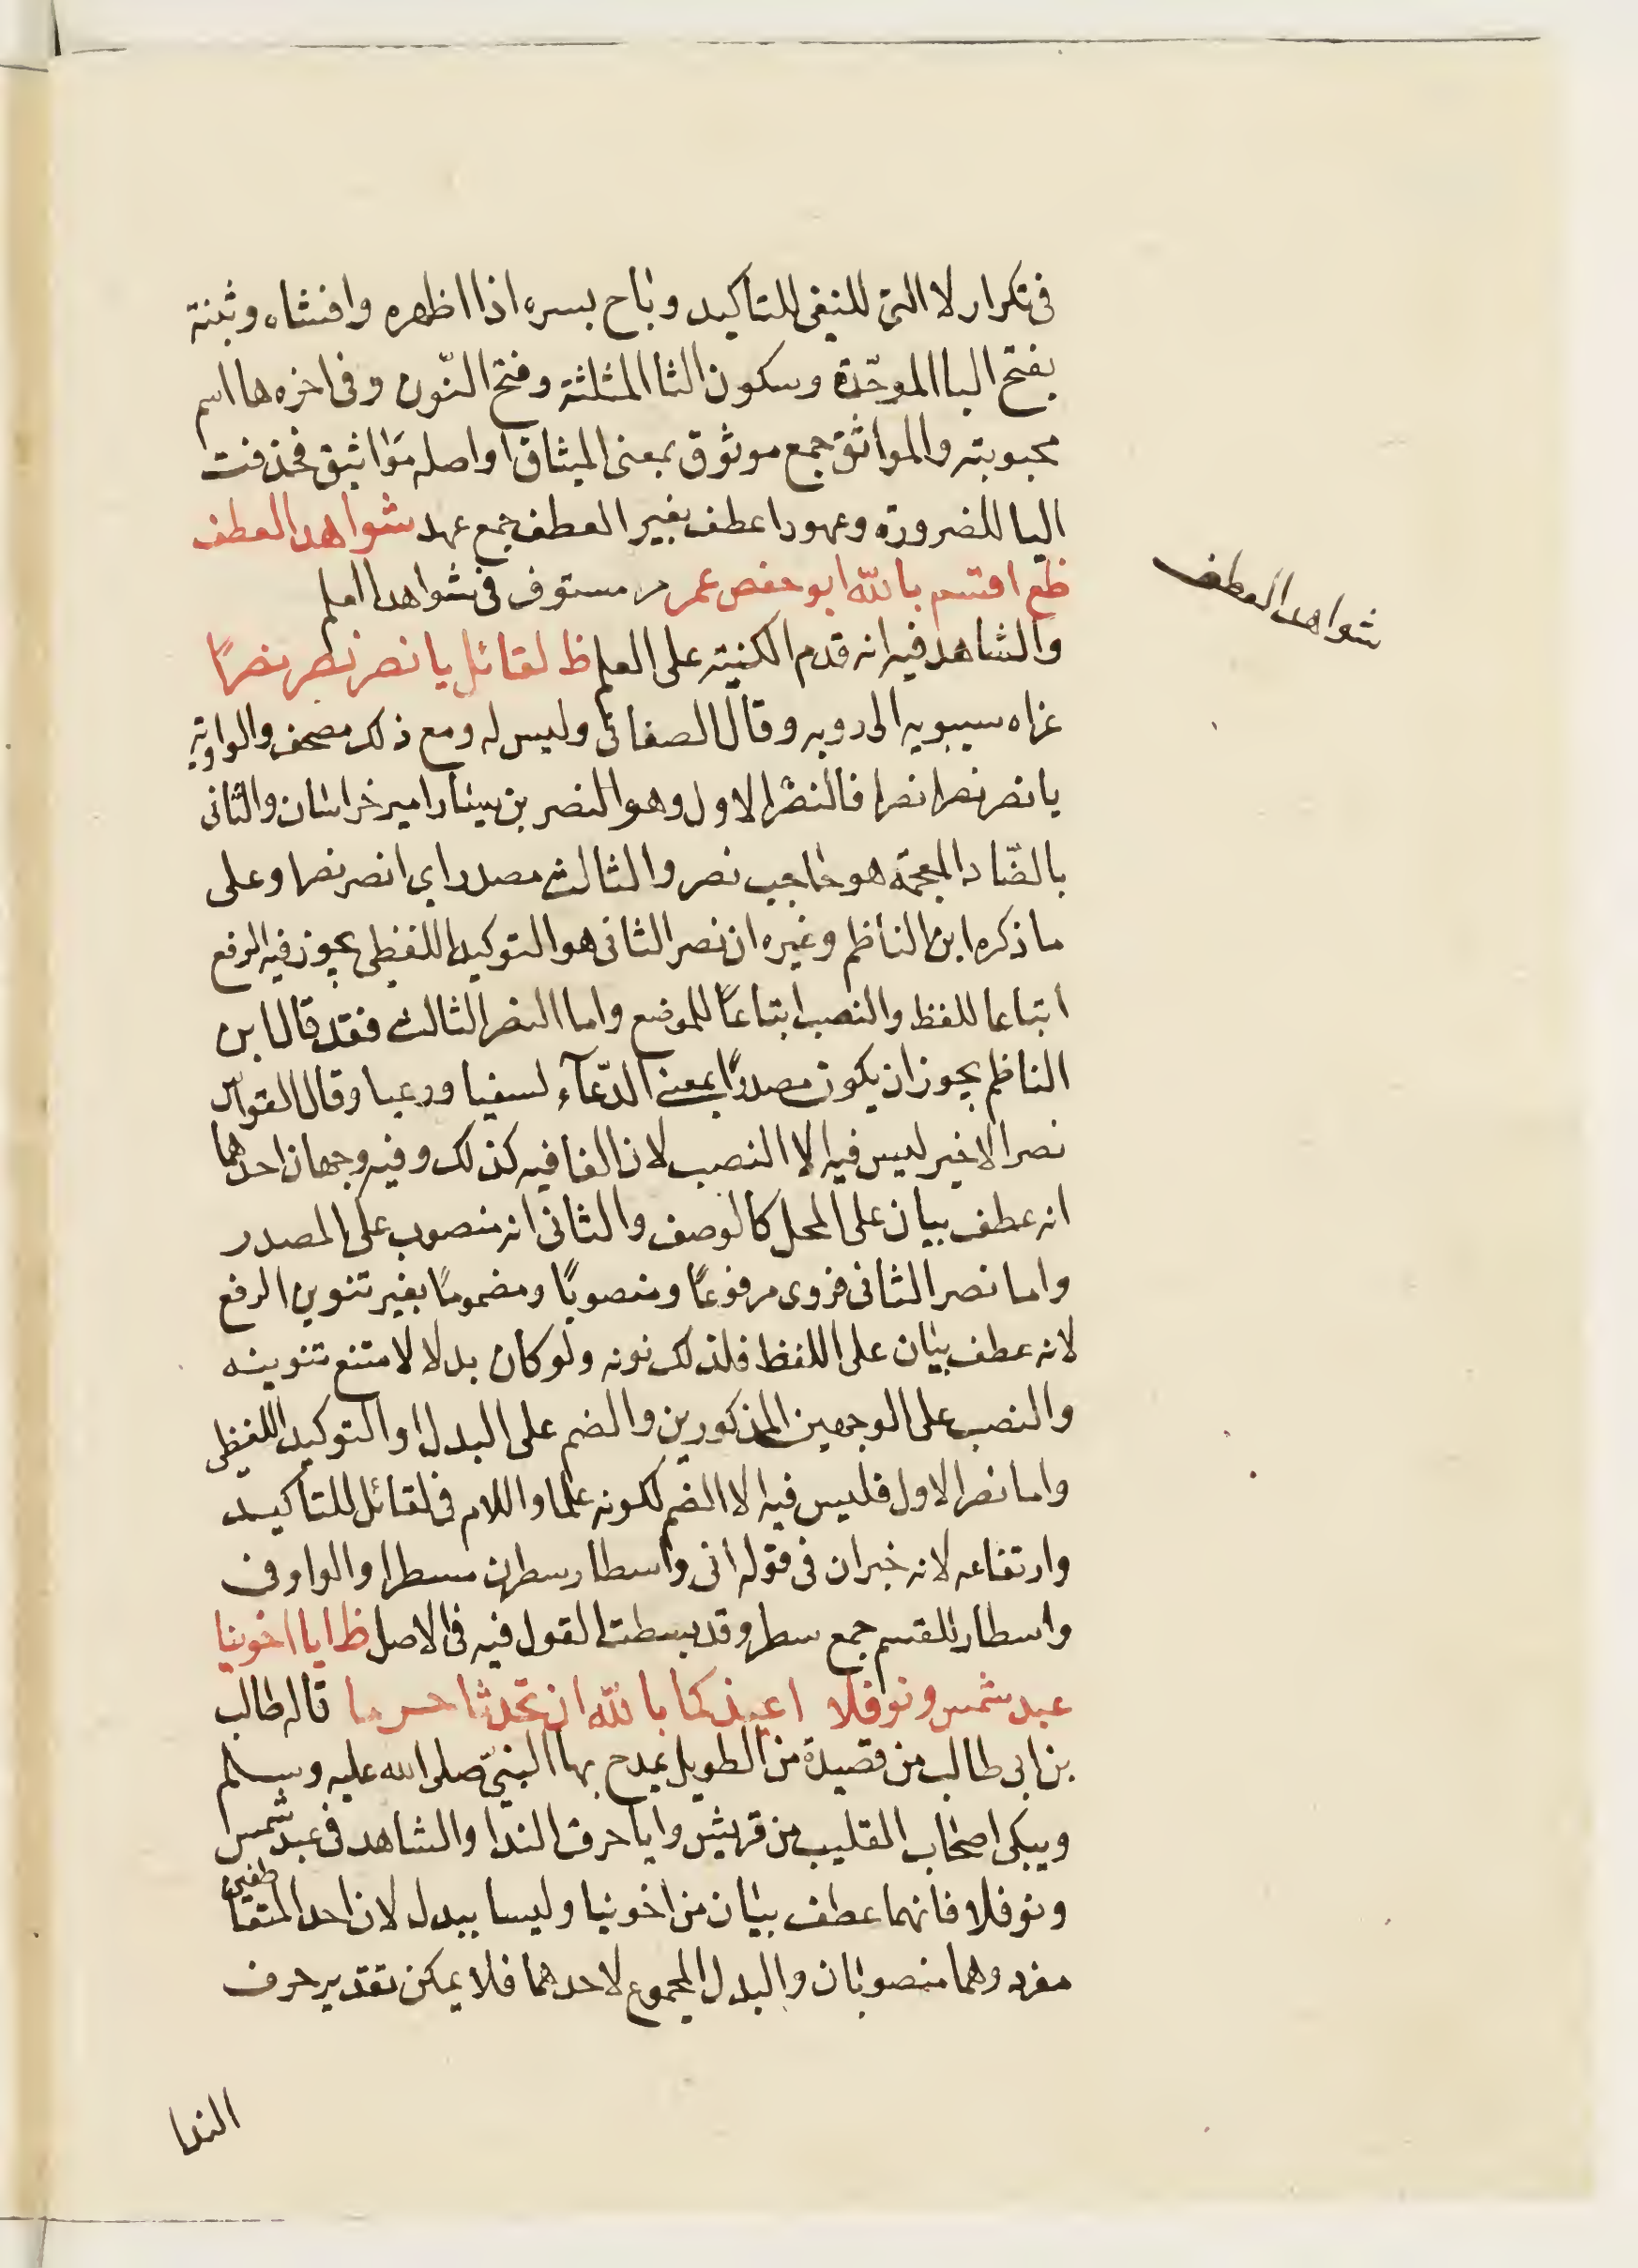 في تكرار لا التي للنفي للتاكيد وباح بسره اذا اظهره وافشاه وبثنة
بفتح البا الموحّدة وسكون الثا المثلثة وفتح النّون وفي اخره ها اسم
محبوبته والمواثق جمع موثوق بمعنى الميثاق او اصله موَاثيق فحذفت
اليا للضرورة وعهودا عطف بغير العطف جمع عهد شواهد العطف
ظع اقسم بالله ابو حفص عمر مر مستوفي في شواهد العلم
والشاهد فيه انه قدم الكنية على العلم ظ لقائل يا نصر نصر نصرًا
عزاه سيبويه الى روبه وقال الصغاني وليس له ومع ذلك مصحف والرواية
يا نصر نصرا نصرا فالنصر الاول وهو النصر بن سيّار امير خراسان والثاني
بالضّاد المعجمة هو حاجب نصر والثالث مصدر اي انصر نصرا وعلى
ما ذكره ابن الناظم وغيره ان نصر الثاني هو التوكيد اللفظي يجوز فيه الرفع
اتباعا للفظ والنصب اتباعًا للموضع واما النصر الثالث فقد قال ابن
الناظم يجوز ان يكون مصدرًا بمعنى الدّعآء لسقيا ورعيا وقال القواس
نصرا الاخير ليس فيه الا النصب لان القافيه كذلك وفيه وجهان احدهما
انه عطف بيان على المحل كالوصف والثاني انه منصوب على المصدر
واما نصر الثاني فروى مرفوعًا ومنصوبًا ومضمومًا بغير تنوين الرفع
لانه عطف بيان على اللفظ فلذلك نونه ولو كان بدلا لامتنع تنوينه
والنصب على الوجهين المذكورين والضم على البدل او التوكيد اللفظي
واما نصر الاول فليس فيه الا الضم لكونه علما واللام في لقائل للتاكيد
وارتفاعه لانه خبر ان في قوله اني واسطار سطرن سطرا والواو في
واسطار للقسم جمع سطر وقد بسطت القول فيه في الاصل ظ ايا اخوينا
عبد شمس ونوفلا اعيذكما بالله ان تحدثا حربا قاله طالب
بن ابي طالب من قصيدة من الطويل يمدح بها النبيّ صلى الله عليه وسلم
ويبكي اصحاب القليب من قريش وايا حرف الندا والشاهد في عبد شمس
ونوفلا فانهما عطف بيان من اخوينا وليسا ببدل لان احد المتعاطفين
مفرد وهما منصوبان والبدل المجموع لا حدهما فلا يمكن تقدير حرف
الندا
شواهد العطف